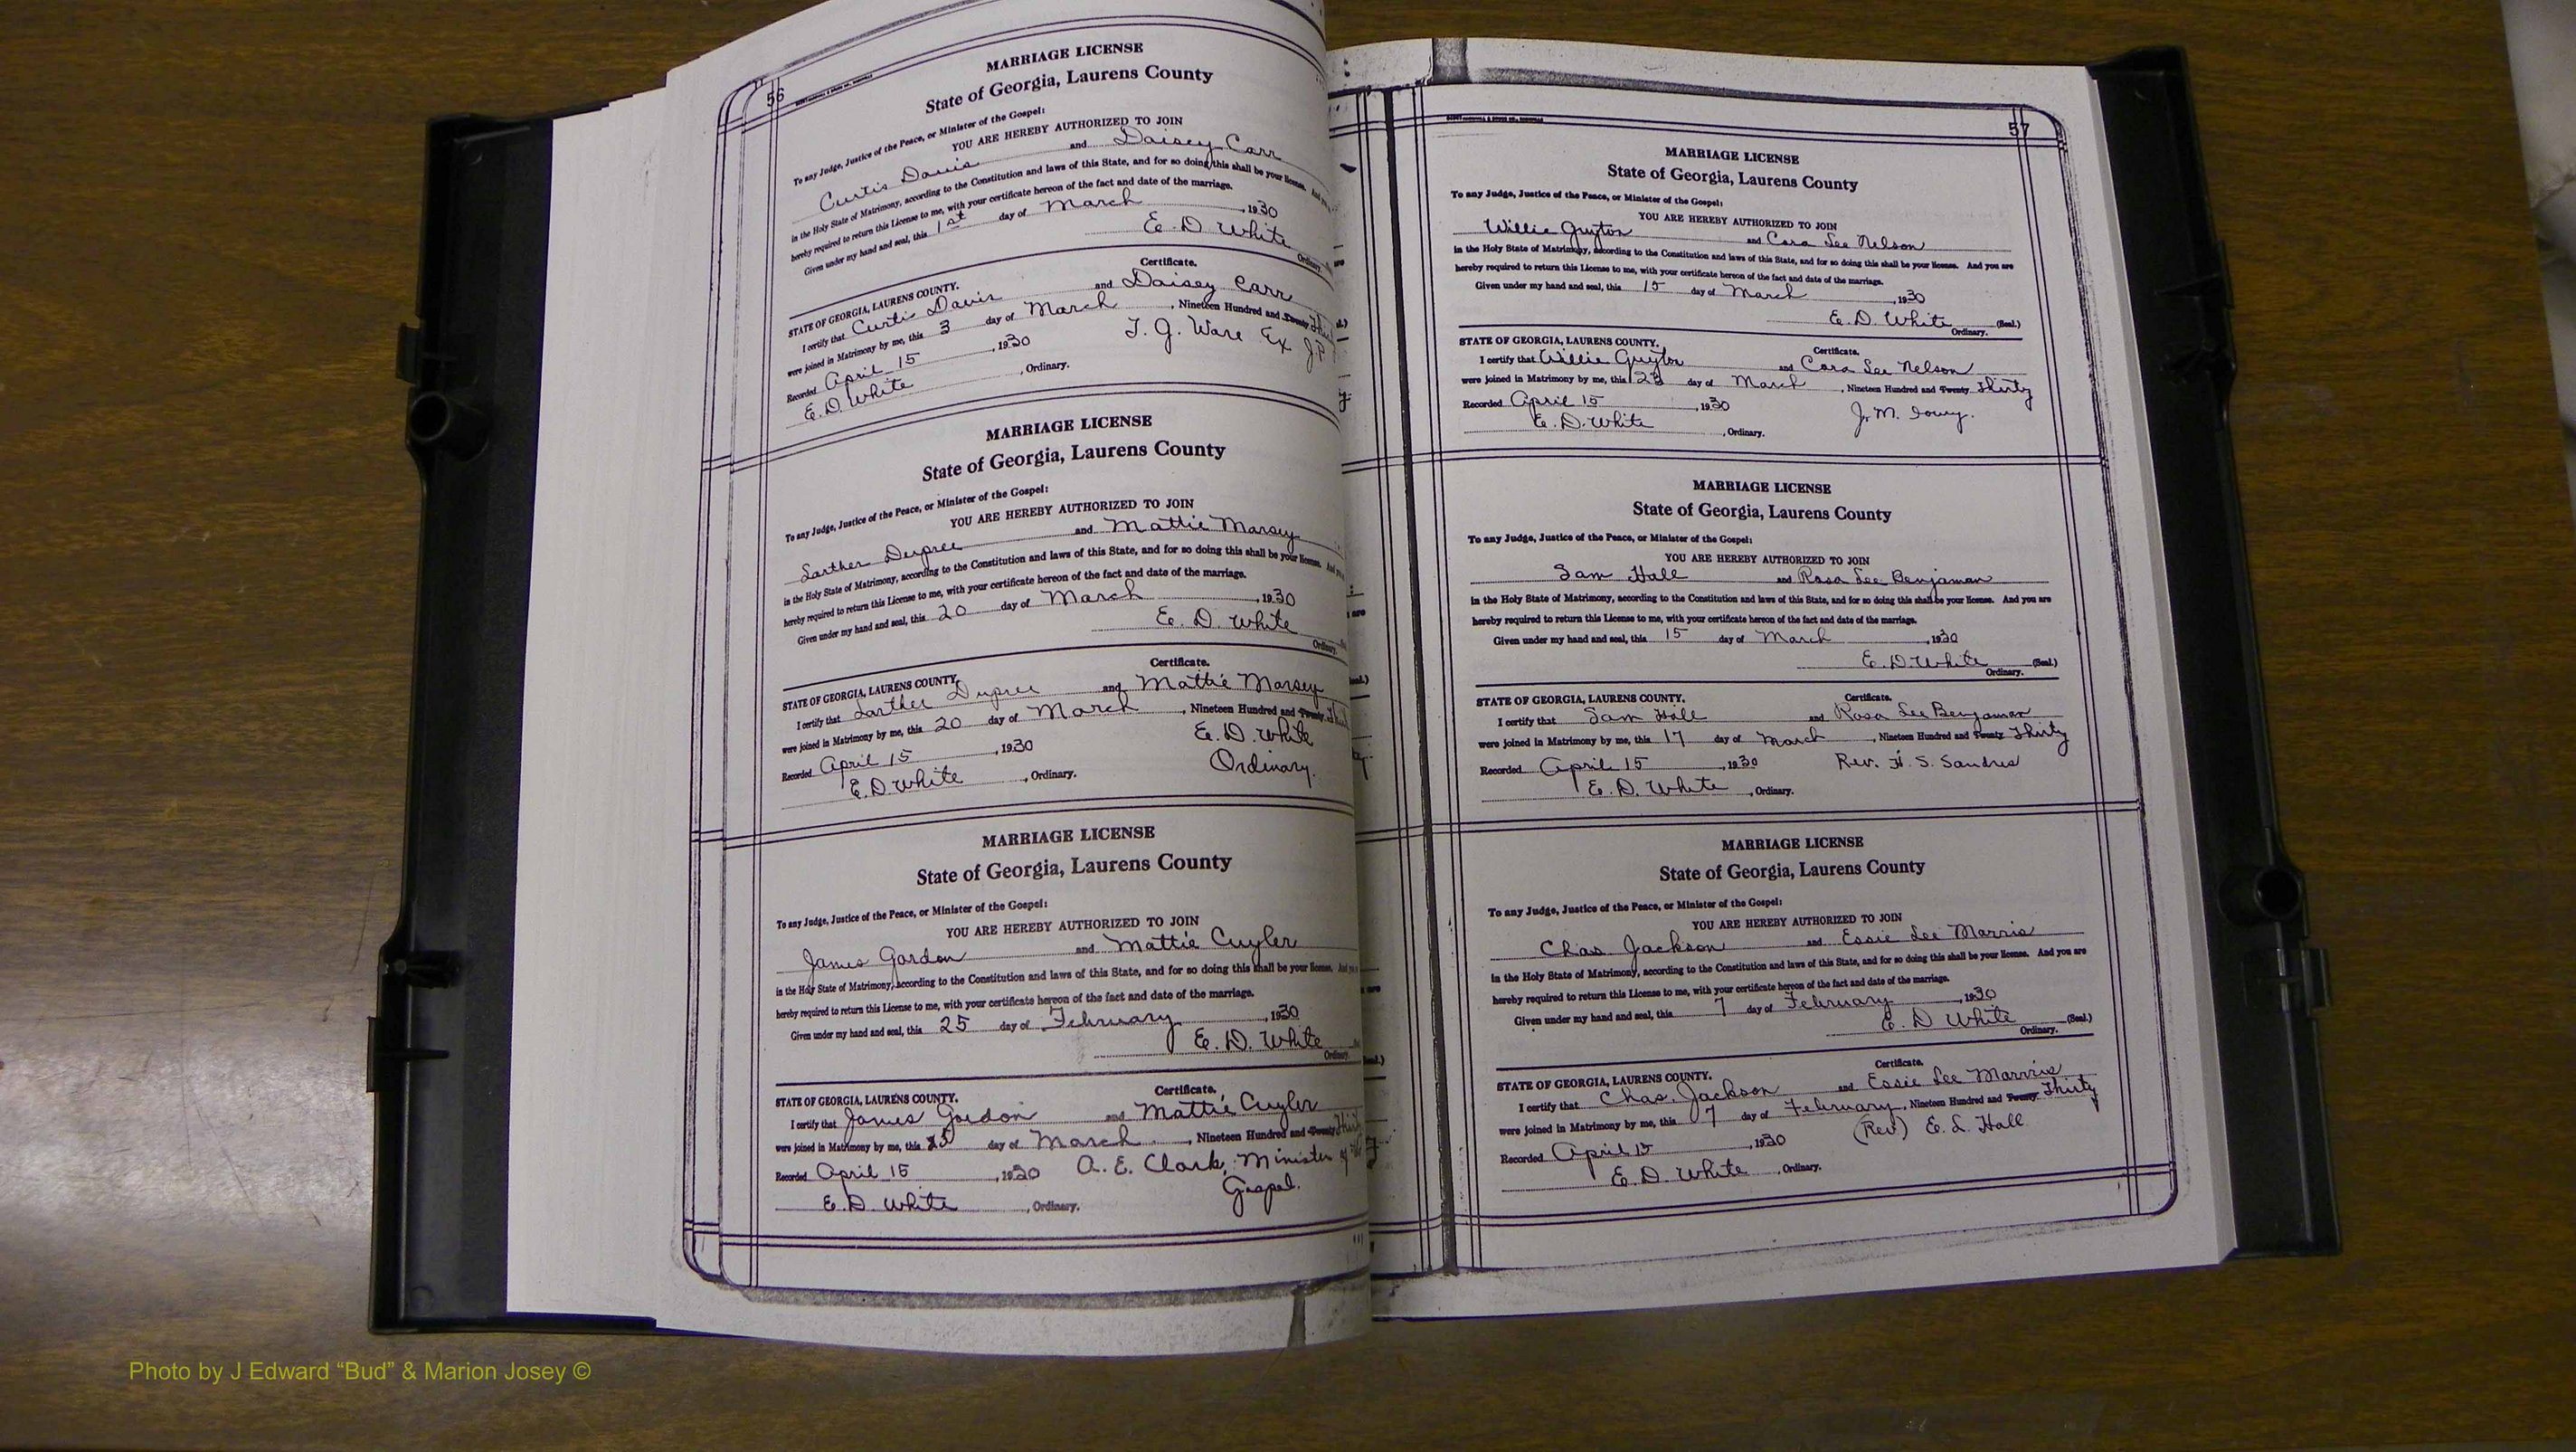 56
MARRIAGE LICENSE
State of Georgia, Laurens County
To any Judge, Justice of the Peace, or Minister of the Gospel:
YOU ARE HEREBY AUTHORIZED TO JOIN
Curtis Davis and Daisey Carr
in the Holy State of Matrimony, according to the Constitution and laws of this State, and for so doing this shall be your license. And you
hereby required to return this License to me, with your certificate hereon of the fact and date of the marriage.
Given under my hand and seal, this 1st day of March, 1930
E. D. White
Ordinary.
Certificate.
STATE OF GEORGIA, LAURENS COUNTY.
I certify that Curtis Davis and Daisey Carr
were joined in Matrimony by me, this 3 day of March, Nineteen Hundred and Twenty
Recorded April 15, 1930 T. J. Ware Ex J.P.
E. D. White, Ordinary.
MARRIAGE LICENSE
State of Georgia, Laurens County
To any Judge, Justice of the Peace, or Minister of the Gospel:
YOU ARE HEREBY AUTHORIZED TO JOIN
Larther Dupree and Mattie Marsey
in the Holy State of Matrimony, according to the Constitution and laws of this State, and for so doing this shall be your license. And you
hereby required to return this License to me, with your certificate hereon of the fact and date of the marriage.
Given under my hand and seal, this 20 day of March, 1930
E. D. White
Ordinary.
Certificate.
STATE OF GEORGIA, LAURENS COUNTY.
I certify that Larther Dupree and Mattie Marsey
were joined in Matrimony by me, this 20 day of March, Nineteen Hundred and Twenty
Recorded April 15, 1930 E. D. White
E. D. White, Ordinary. Ordinary.
MARRIAGE LICENSE
State of Georgia, Laurens County
To any Judge, Justice of the Peace, or Minister of the Gospel:
YOU ARE HEREBY AUTHORIZED TO JOIN
James Gordon and Mattie Cuyler
in the Holy State of Matrimony, according to the Constitution and laws of this State, and for so doing this shall be your license. And
hereby required to return this License to me, with your certificate hereon of the fact and date of the marriage.
Given under my hand and seal, this 25 day of February, 1930
E. D. White
Ordinary.
Certificate.
STATE OF GEORGIA, LAURENS COUNTY.
I certify that James Gordon and Mattie Cuyler
were joined in Matrimony by me, this day of March, Nineteen Hundred and Twenty
Recorded April 15, 1930 A. E. Clark, Minister of
Gospel.
E. D. White, Ordinary.
57
MARRIAGE LICENSE
State of Georgia, Laurens County
To any Judge, Justice of the Peace, or Minister of the Gospel:
YOU ARE HEREBY AUTHORIZED TO JOIN
Willie Guyton and Cora Lee Nelson
in the Holy State of Matrimony, according to the Constitution and laws of this State, and for so doing this shall be your license. And you are
hereby required to return this License to me, with your certificate hereon of the fact and date of the marriage.
Given under my hand and seal, this 15 day of March, 1930
E. D. White (Seal.)
Ordinary.
Certificate.
STATE OF GEORGIA, LAURENS COUNTY.
I certify that Willie Guyton and Cora Lee Nelson
were joined in Matrimony by me, this 23 day of March, Nineteen Hundred and Twenty Thirty
Recorded April 15, 1930 J. M.
E. D. White, Ordinary.
MARRIAGE LICENSE
State of Georgia, Laurens County
To any Judge, Justice of the Peace, or Minister of the Gospel:
YOU ARE HEREBY AUTHORIZED TO JOIN
Sam Hall and Rosa Lee Benjaman
in the Holy State of Matrimony, according to the Constitution and laws of this State, and for so doing this shall be your license. And you are
hereby required to return this License to me, with your certificate hereon of the fact and date of the marriage.
Given under my hand and seal, this 15 day of March, 1930
E. D. White (Seal.)
Ordinary.
Certificate.
STATE OF GEORGIA, LAURENS COUNTY.
I certify that Sam Hall and Rosa Lee Benjaman
were joined in Matrimony by me, this 17 day of March, Nineteen Hundred and Twenty Thirty
Recorded April 15, 1930 Rev. H. S. Sandres
E. D. White, Ordinary.
MARRIAGE LICENSE
State of Georgia, Laurens County
To any Judge, Justice of the Peace, or Minister of the Gospel:
YOU ARE HEREBY AUTHORIZED TO JOIN
Chas Jackson and Essie Lee Marris
in the Holy State of Matrimony, according to the Constitution and laws of this State, and for so doing this shall be your license. And you are
hereby required to return this License to me, with your certificate hereon of the fact and date of the marriage.
Given under my hand and seal, this 7 day of February, 1930
E. D White (Seal.)
Ordinary.
Certificate.
STATE OF GEORGIA, LAURENS COUNTY.
I certify that Chas. Jackson and Essie Lee Marris
were joined in Matrimony by me, this 7 day of February, Nineteen Hundred and Twenty Thirty
Recorded April 15, 1930 (Rev.) E. L. Hall
E. D. White, Ordinary.
Photo by J Edward “Bud” & Marion Josey ©